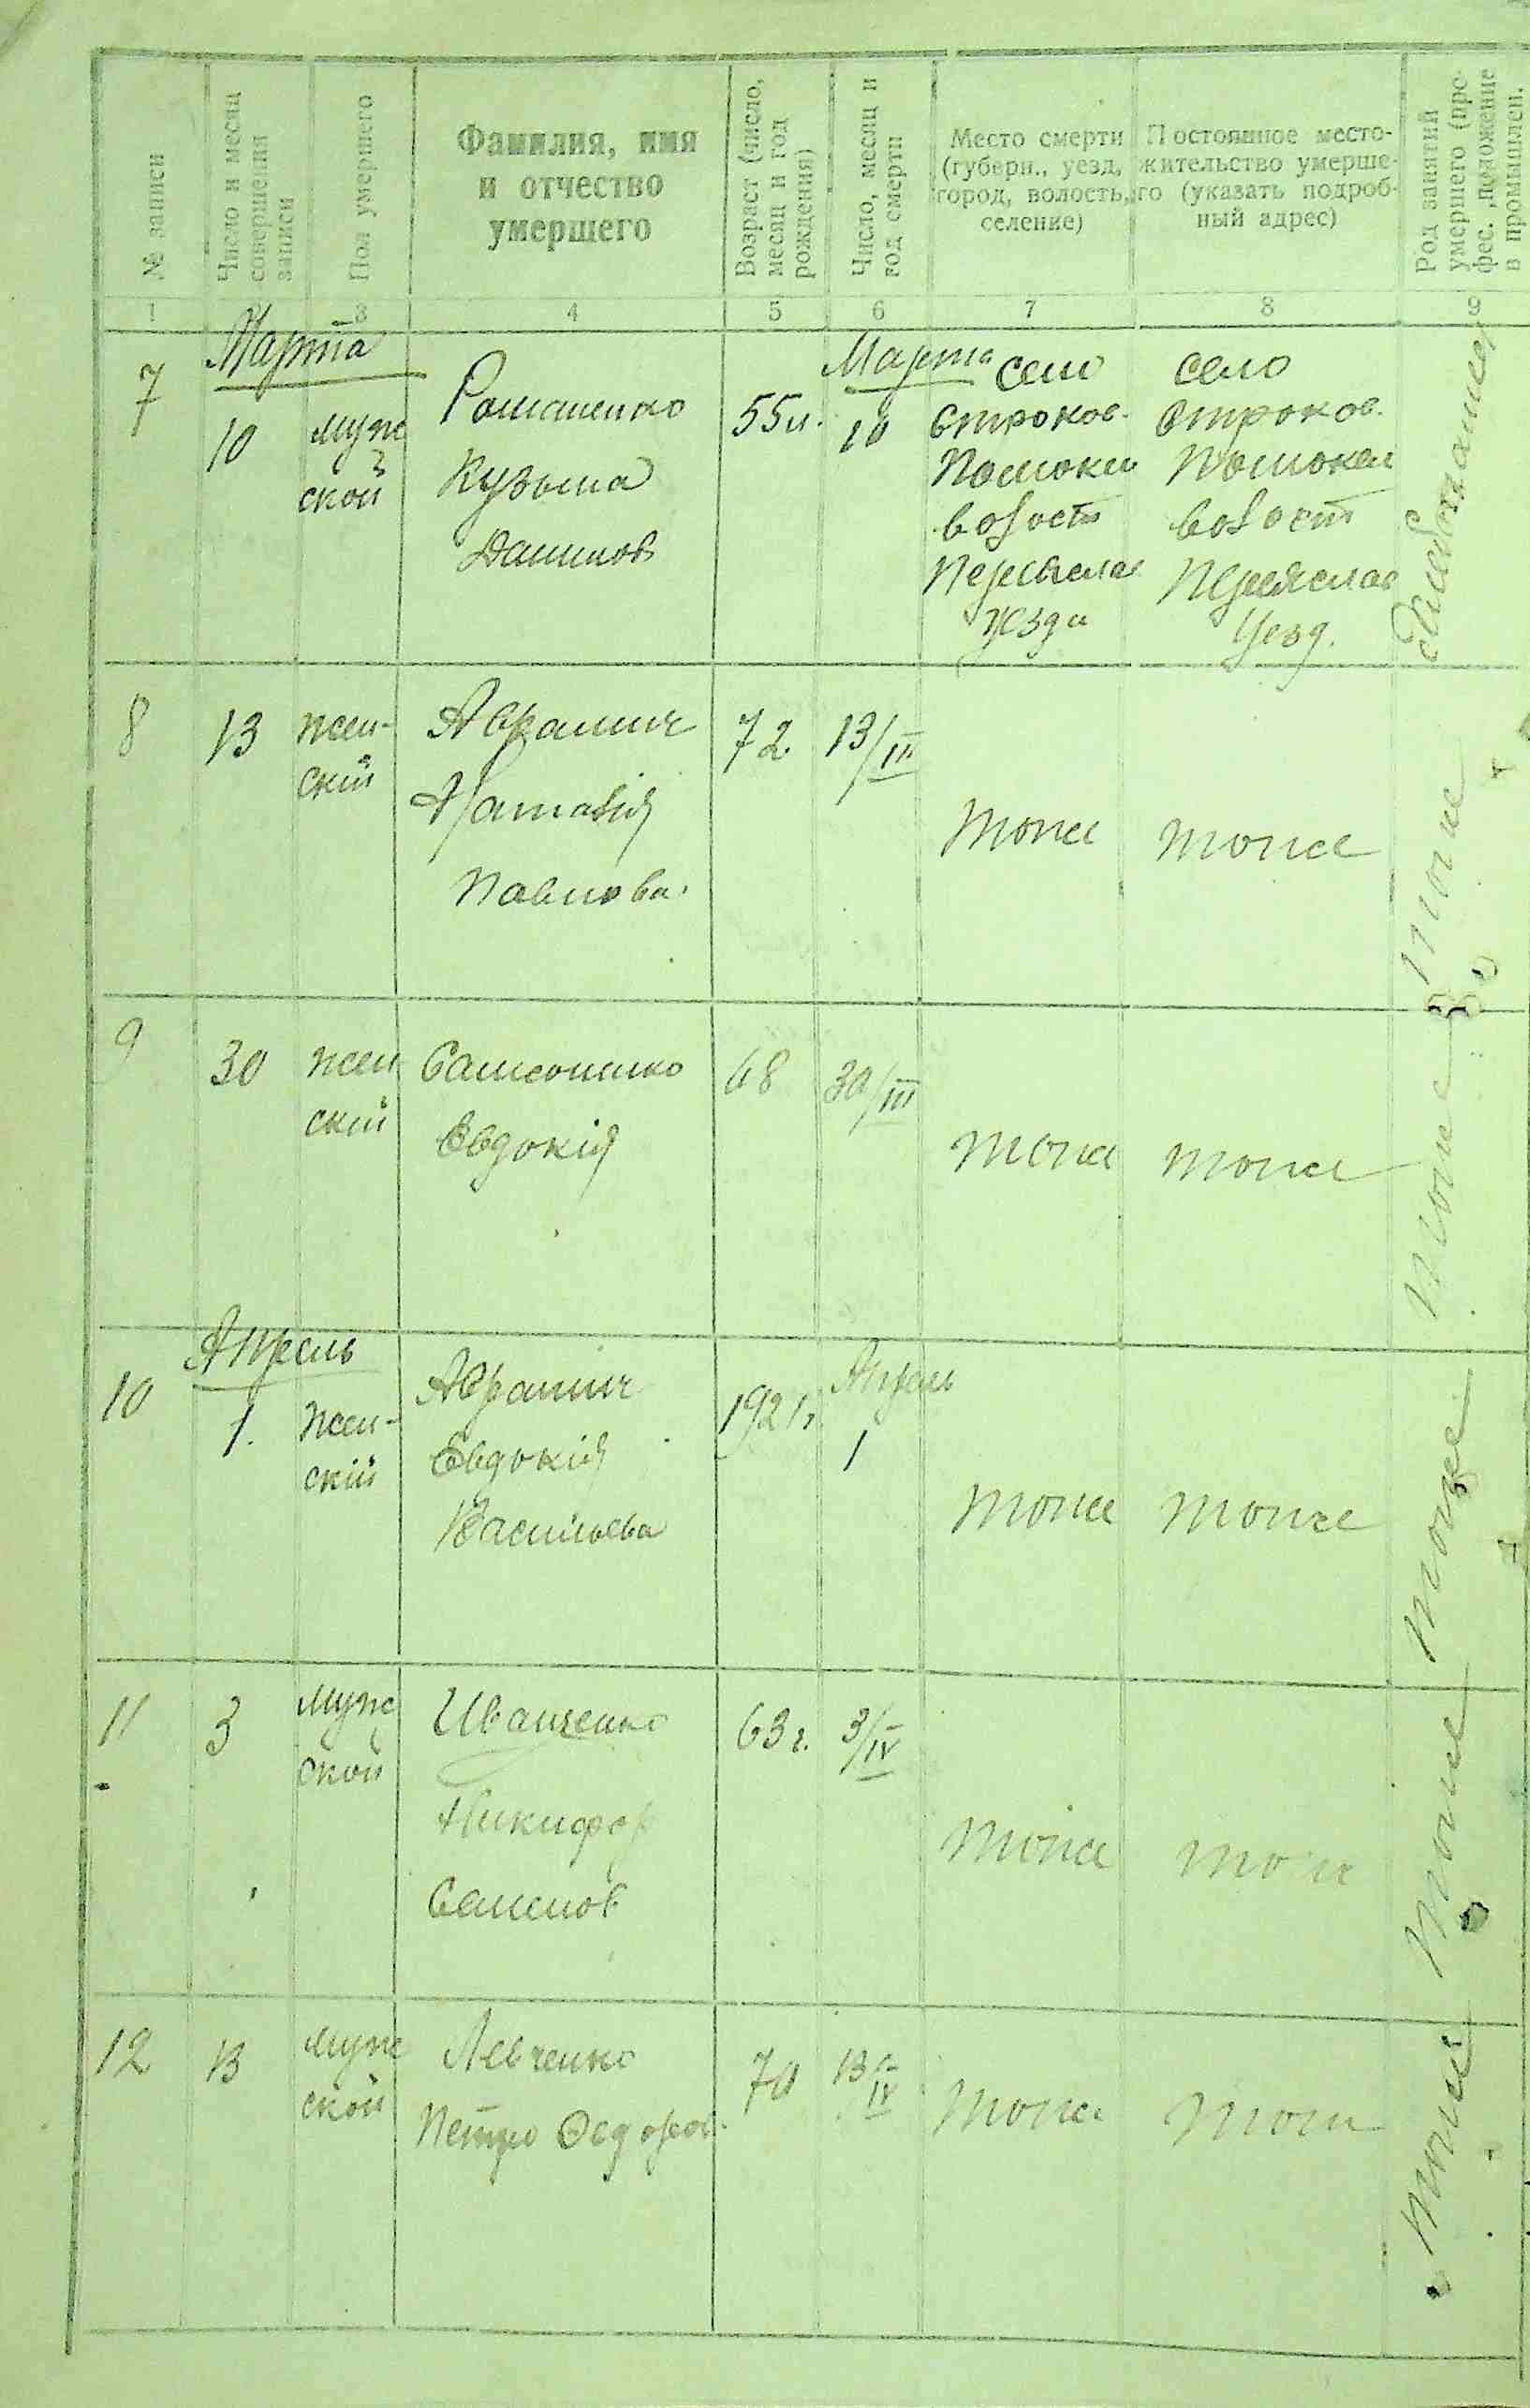 № записи
Число и месяц
совершения
записи
Пол умершего
Фамилия, имя
и отчество
умершего
Возраст (число,
месяц и год
рождения)
Число, месяц и
год смерти
Место смерти
(губерн., уезд,
город, волость,
селение)
Постоянное место-
жительство умерше-
го (указать подроб-
ный адрес)
Род занятий
умершего (про-
фес., положение
в промышлен.
1
3
4
5
6
7
8
9
Марта
7
10
муж
ской
Романенко
Кузьма
Данилов
55 л.
Марта
10
село
Строков.
Помокли
волост
Переяслав
уезда
село
Строков.
Помокли
волост
Переяслав
уезд.
8
13
жен-
ский
Аврамич
Наталія
Павлова.
72.
13/III
тоже
тоже
тоже
9
30
жен
ский
Самсоненко
Евдокія
68
30/III
тоже
тоже
тоже
Апрель
10
1.
жен-
скій
Аврамич
Евдокія
Васильева
1921 г.
Апрель
1
тоже
тоже
тоже
11
3
муж
ской
Иванченко
Никифор
Семенов
63 г.
3/IV
тоже
тоже
тоже
12
13
муж
ской
Левченко
Петро Федоров.
70
13/IV
тоже
тоже
тоже